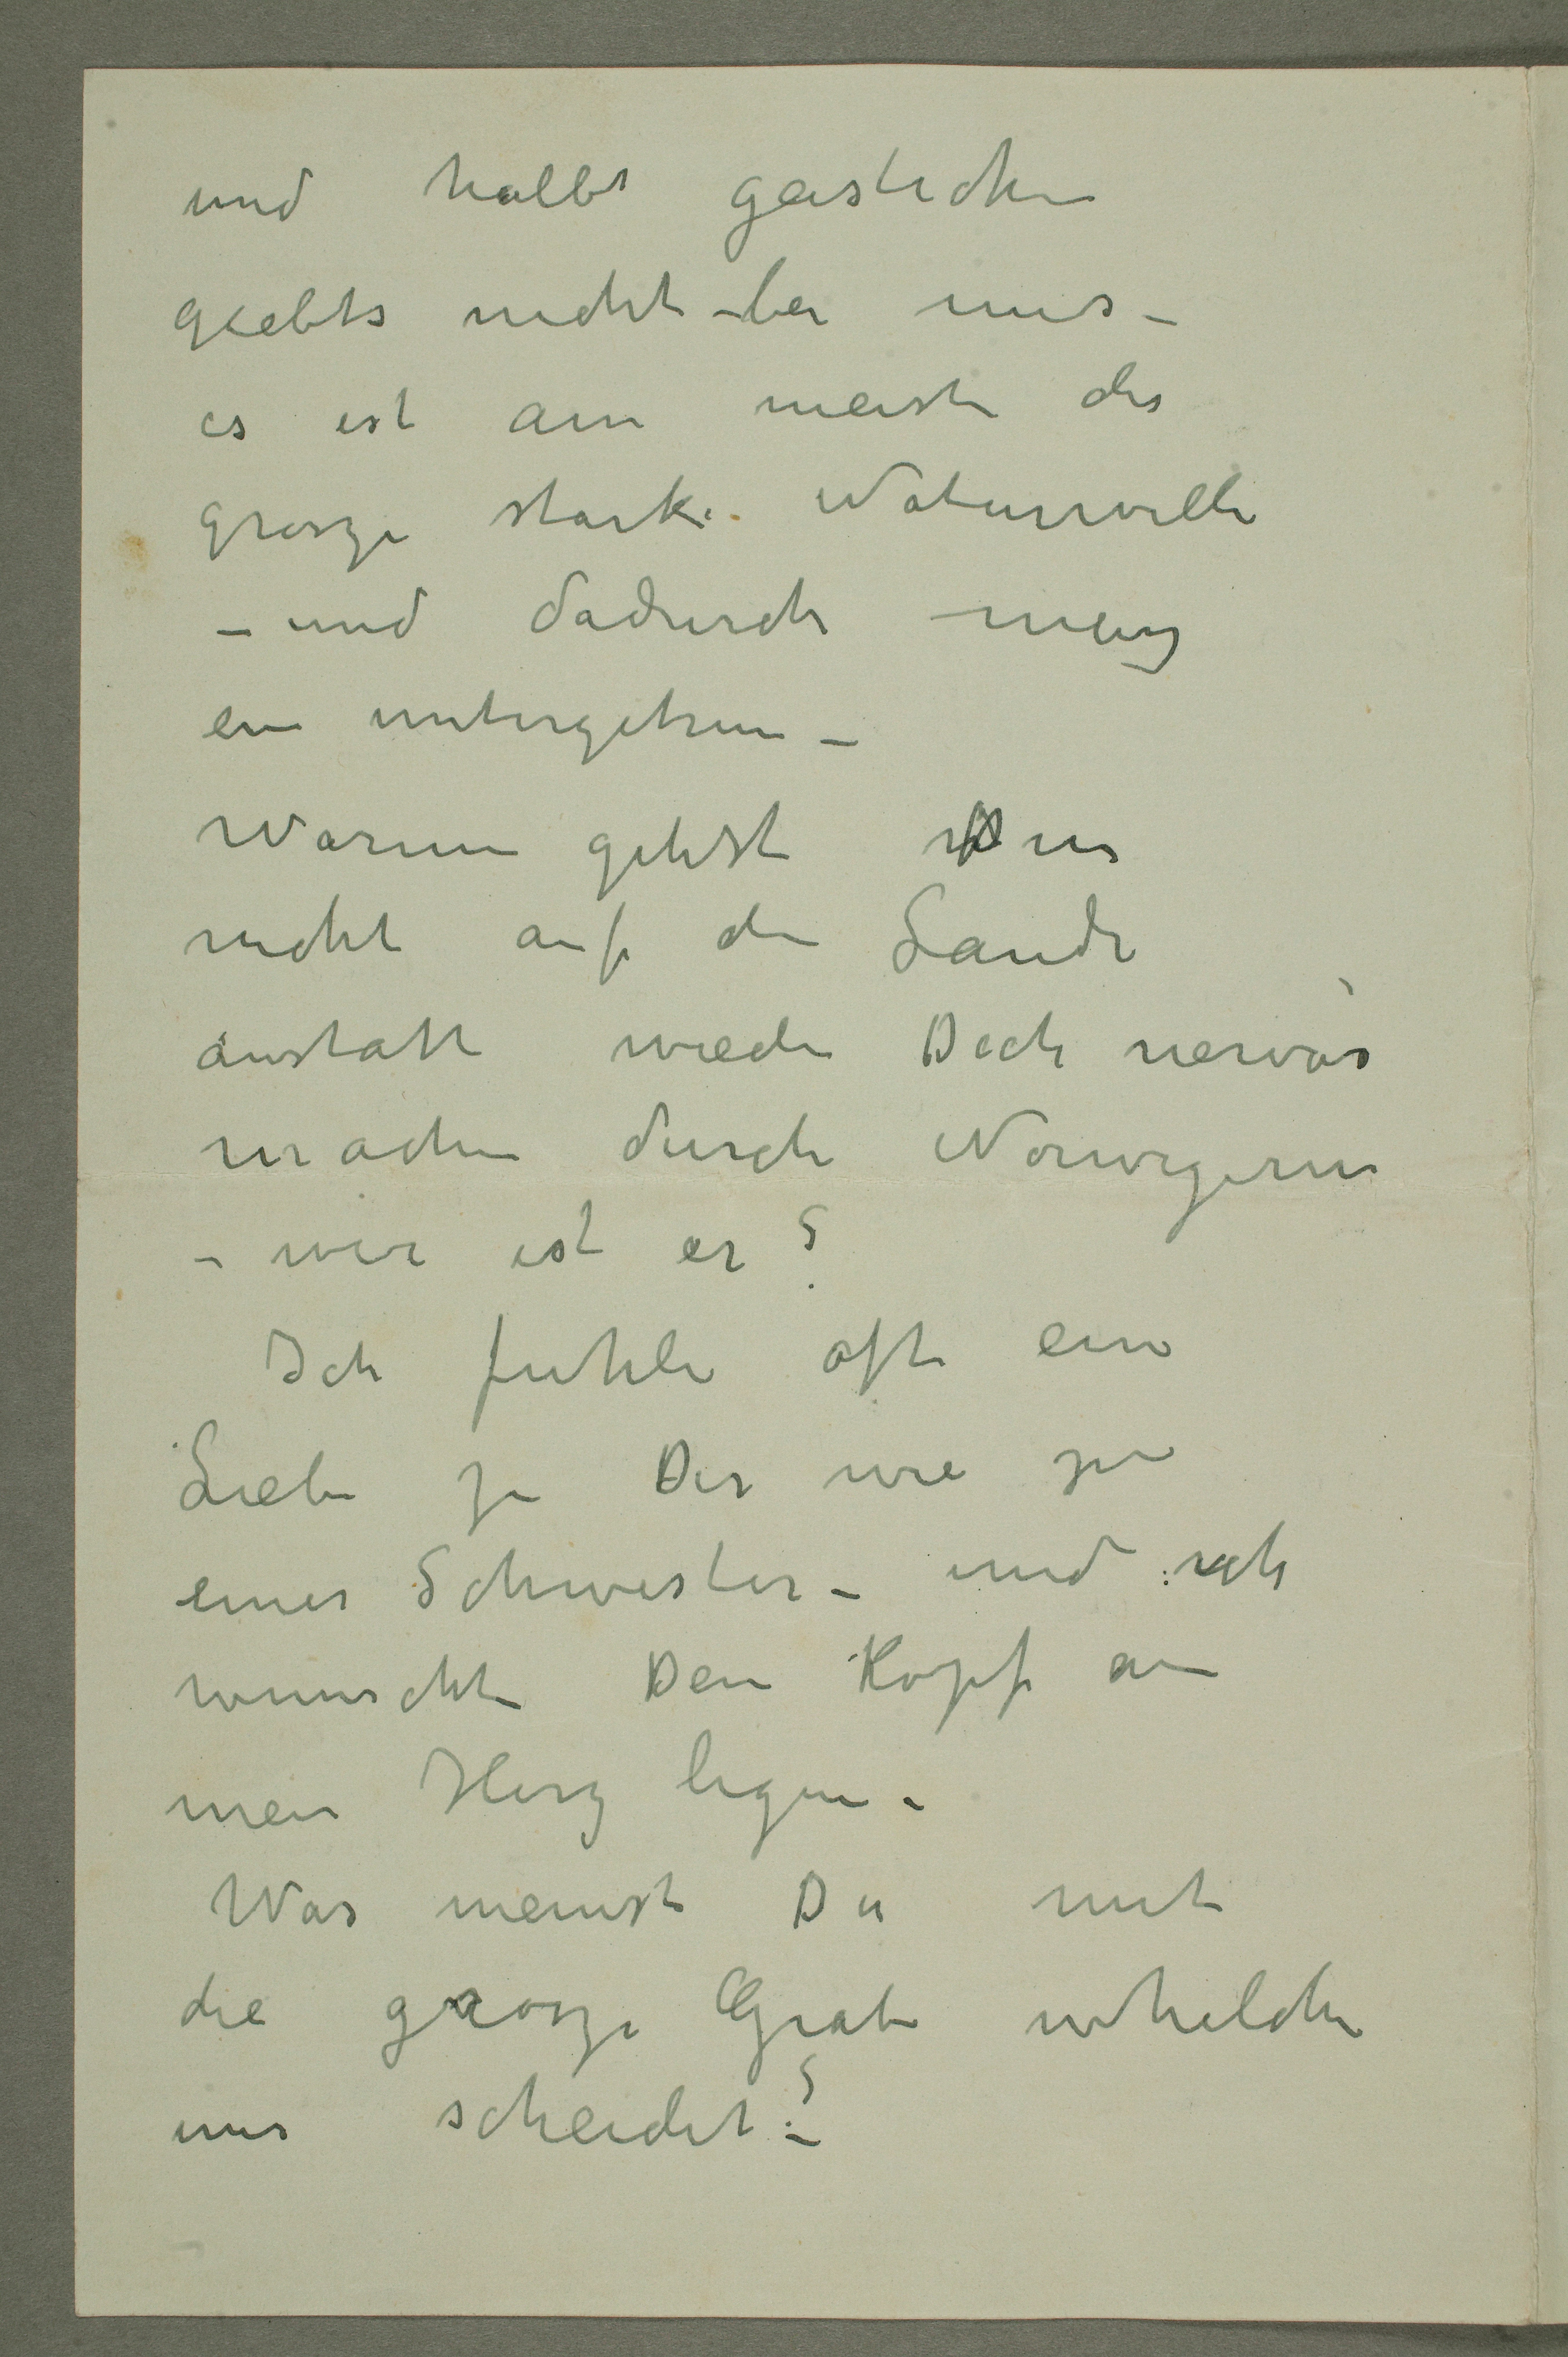 und halbt geistichen
giebts nicht – bei uns –
es ist am meisten der
grosze starke Naturwille
– und dadurch musz
ein untergehen –
Warum gehst Du
nicht auf den Lande
anstatt wieder Dich nervös
machen durch Norwegern
– wer ist er?
Ich fuhle oft eine
Liebe zu Dir wie zu
einer Schwester – und ich
wunschte Dein Kopf an
mein Herz legen –
Was meinst Du mit
die grosze Grabe whelche
uns scheidet? –